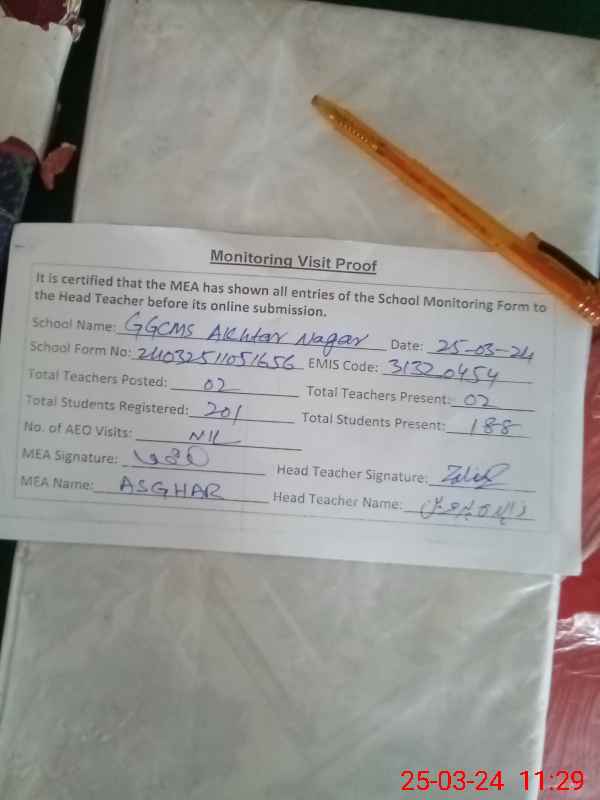 Monitoring Visit Proof
It is certified that the MEA has shown all entries of the School Monitoring Form to
the Head Teacher before its online submission.
School Name: GGCMS Akhtar Nagar Date: 25-03-24
School Form No: 24032511051656 EMIS Code: 31320454
Total Teachers Posted: 02 Total Teachers Present: 02
Total Students Registered: 201 Total Students Present: 188
No. of AEO Visits: NIL
MEA Signature: Head Teacher Signature:
MEA Name: ASGHAR Head Teacher Name:
25-03-24 11:29